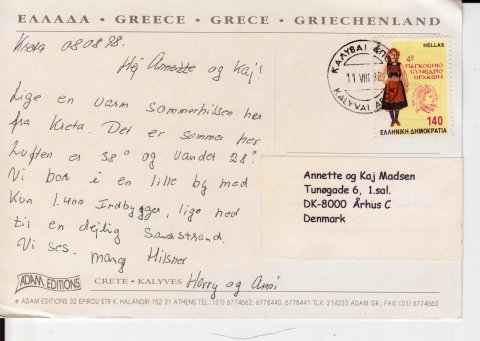 ΕΛΛΑΔΑ • GREECE • GRECE • GRIECHENLAND
Kreta 08.08.98.
Hej Annette og Kaj!
Lige en varm sommerhilsen her
fra Kreta. Det er sommer her
Luften er 38° og vandet 28°.
Vi bor i en lille by med
Kun 1.400 Indbygger, lige ned
til en dejlig Sandstrand.
Vi ses. mang Hilsner
Harry og
ΚΑΛΥΒΑΙ
11 VIII 98
KALYVAI
HELLAS
4º
ΠΑΓΚΟΣΜΙΟ
ΣΥΝΕΔΡΙΟ
ΘΡΑΚΩΝ
140
ΕΛΛΗΝΙΚΗ ΔΗΜΟΚΡΑΤΙΑ
Annette og Kaj Madsen
Tunøgade 6, 1.sal.
DK-8000 Århus C
Denmark
ADAM EDITIONS
CRETE • KALYVES
® ADAM EDITIONS 32 EPIROU STR K. HALANDRI 152 31 ATHENS TEL. (01) 6774662, 6778440, 6778441 TLX: 214223 ADAM GR., FAX: (01) 6774663